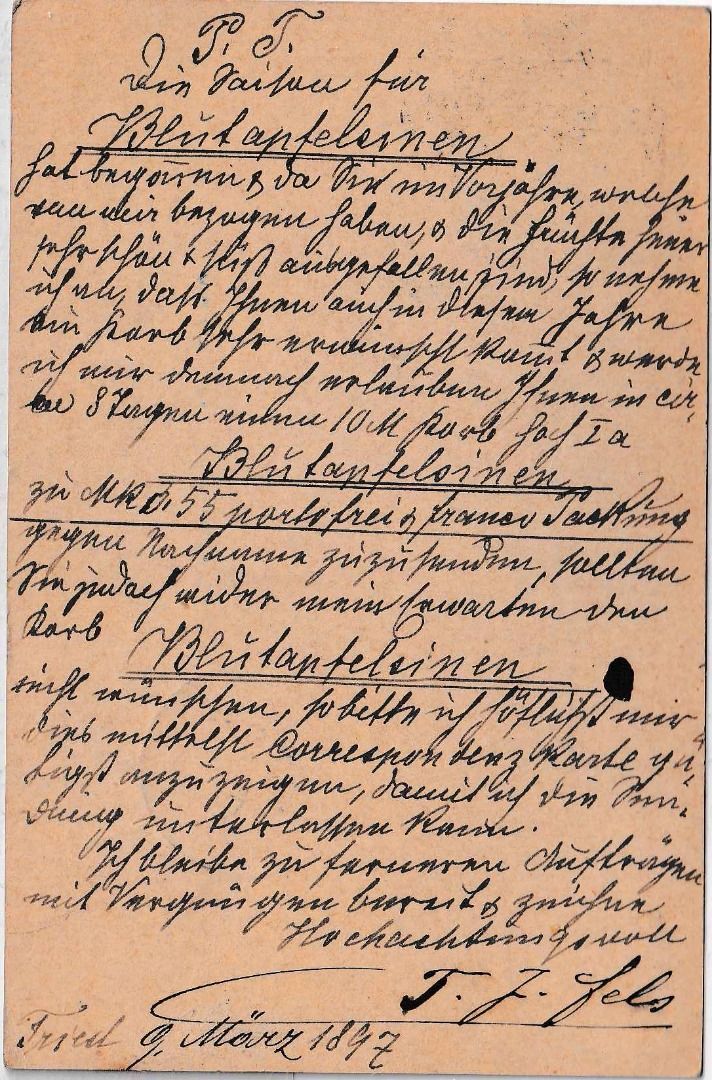 P. T.
Die Saison für
Blutapfelsinen
hat begonnen & da Sie im Vorjahre, welche
von mir bezogen haben, & die Früchte heuer
sehr schön & süß ausgefallen sind, so nehme
ich an, dass Ihnen auch in diesem Jahre
ein Korb sehr erwünscht komt & werde
ich mir demnach erlauben Ihnen in cir-
ca 8 Tagen einen 10 M Korb hoch Ia
Blutapfelsinen
zu Mk 55 portofrei & franco Packung
gegen Nachname zuzusenden, sollten
Sie jedoch wider mein Erwarten den
Korb
Blutapfelsinen
nicht wünschen, so bitte ich höflichst mir
dies mittelst Correspondenz Karte gü-
tigst anzuzeigen, damit ich die Sen-
dung unterlassen kann.
Ich bleibe zu ferneren Aufträgen
mit Vergnügen bereit & zeichne
Hochachtungsvoll
T. J. Fels
Triest 9. März 1897